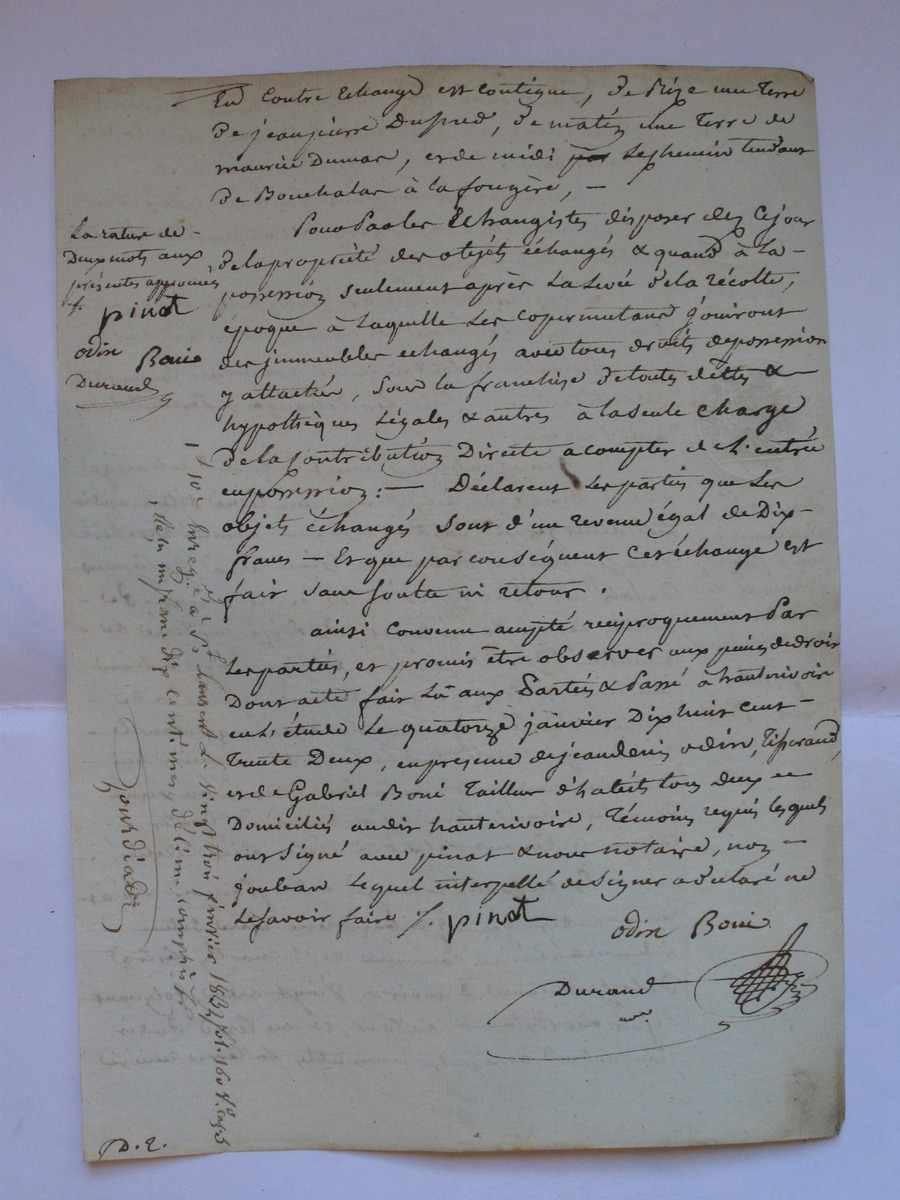 En Contre Echange est contigue, de bize une terre
de jeanpierre Dupred, de matin une terre de
maurice Dumas, et de midi le chemin tendant
de Bouchalas à la fougère, —
Pourront les Echangistes disposer des Ce jour
de la propriété des objets échangés & quand à la —
possession seulement après La Levée de la récolte,
époque à laquelle Les copermutans jouiront
des jmmeubles echangés avec tous droits de possession
y attachés, sous la franchise de toutes dettes &
hypothèques Légales & autres à la seule charge
de la Contribution Directe a compter de L'entrée
en possession : — Déclarent Les parties que Les
objets échangés sont d'un revenu égal de Dix-
francs — Et que par conséquent Cet échange est
fait sans soulte ni retour.
ainsi Convenu accepté réciproquement Par
Les parties, et promis être observer aux peines de droit
Dont acte fait Lu aux Parties & Passé à hauterivoire
en L'étude Le quatorze janvier Dix huit cent —
trente Deux, en presence de jean denis odin, Tisserand,
et de Gabriel Boni Tailleur d'habits tous deux
Domiciliés audit hauterivoire, Témoins requis lesquels
ont signé avec pinat & nous notaire, non —
jouban Lequel interpellé de signer a declaré ne
Le savoir faire ./. pinat
odin Boni
Durand
La rature de —
Deux mots aux
présentes approuvée
./. pinat
odin Boni
Durand
Enreg. à St Laurent le vingt trois janvier 1832 fol. 160 Vo
un franc dix centimes décime compris
D. 2.